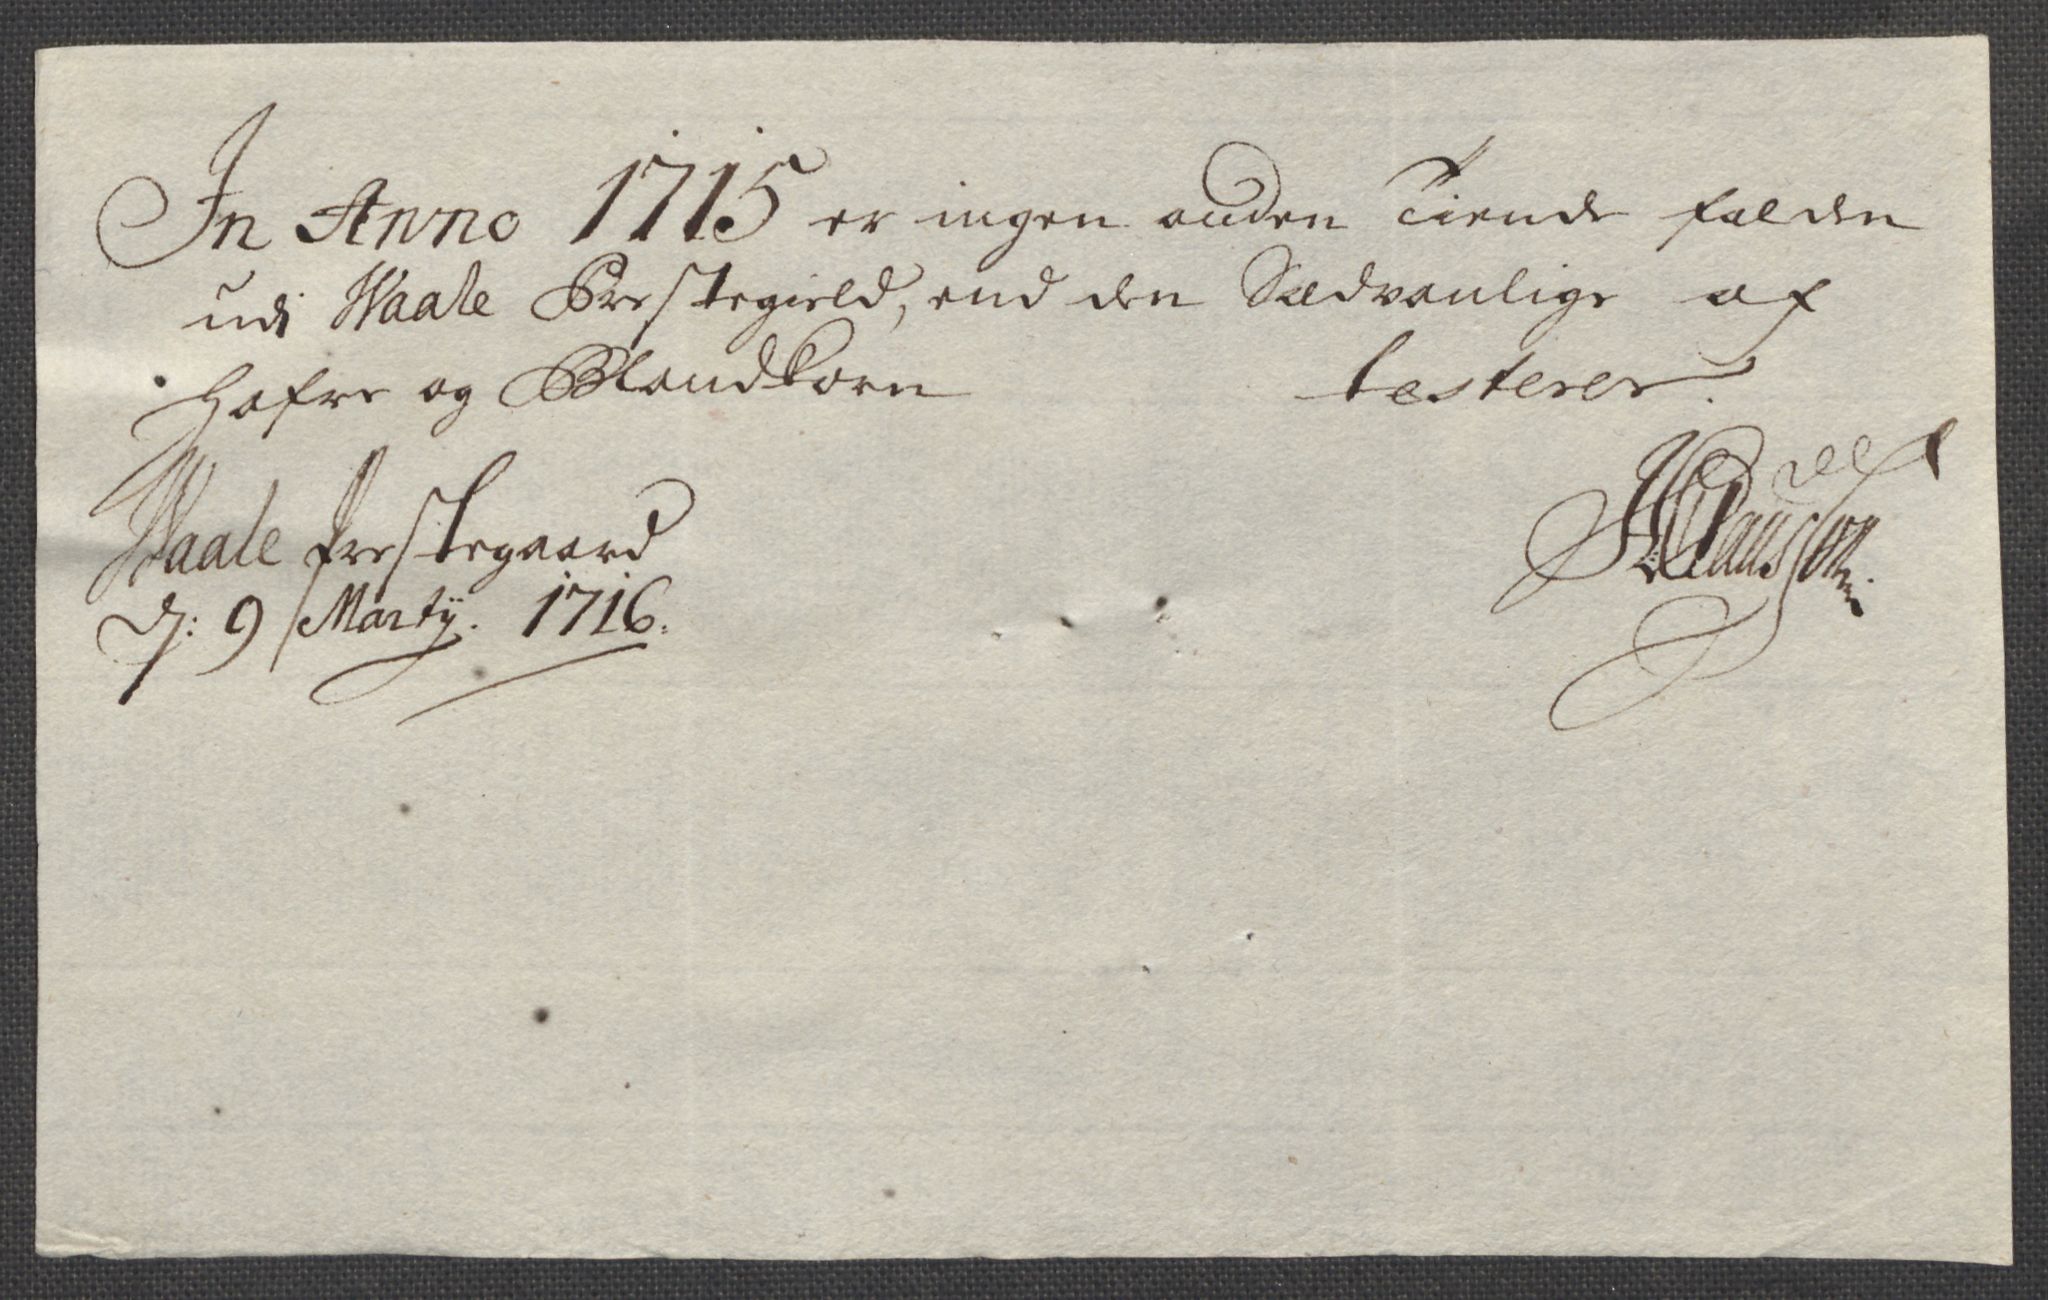 In Anno 1715 er ingen anden Tiende falden
udi Waale Prestegield, end den Sædvanlige af
Hafre og Blandkorn testerer.
HClausson
Waale Prestegaard
d: 9 Martij. 1716.